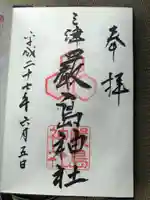 奉拝
三津
厳島神社
平成二十七年六月五日